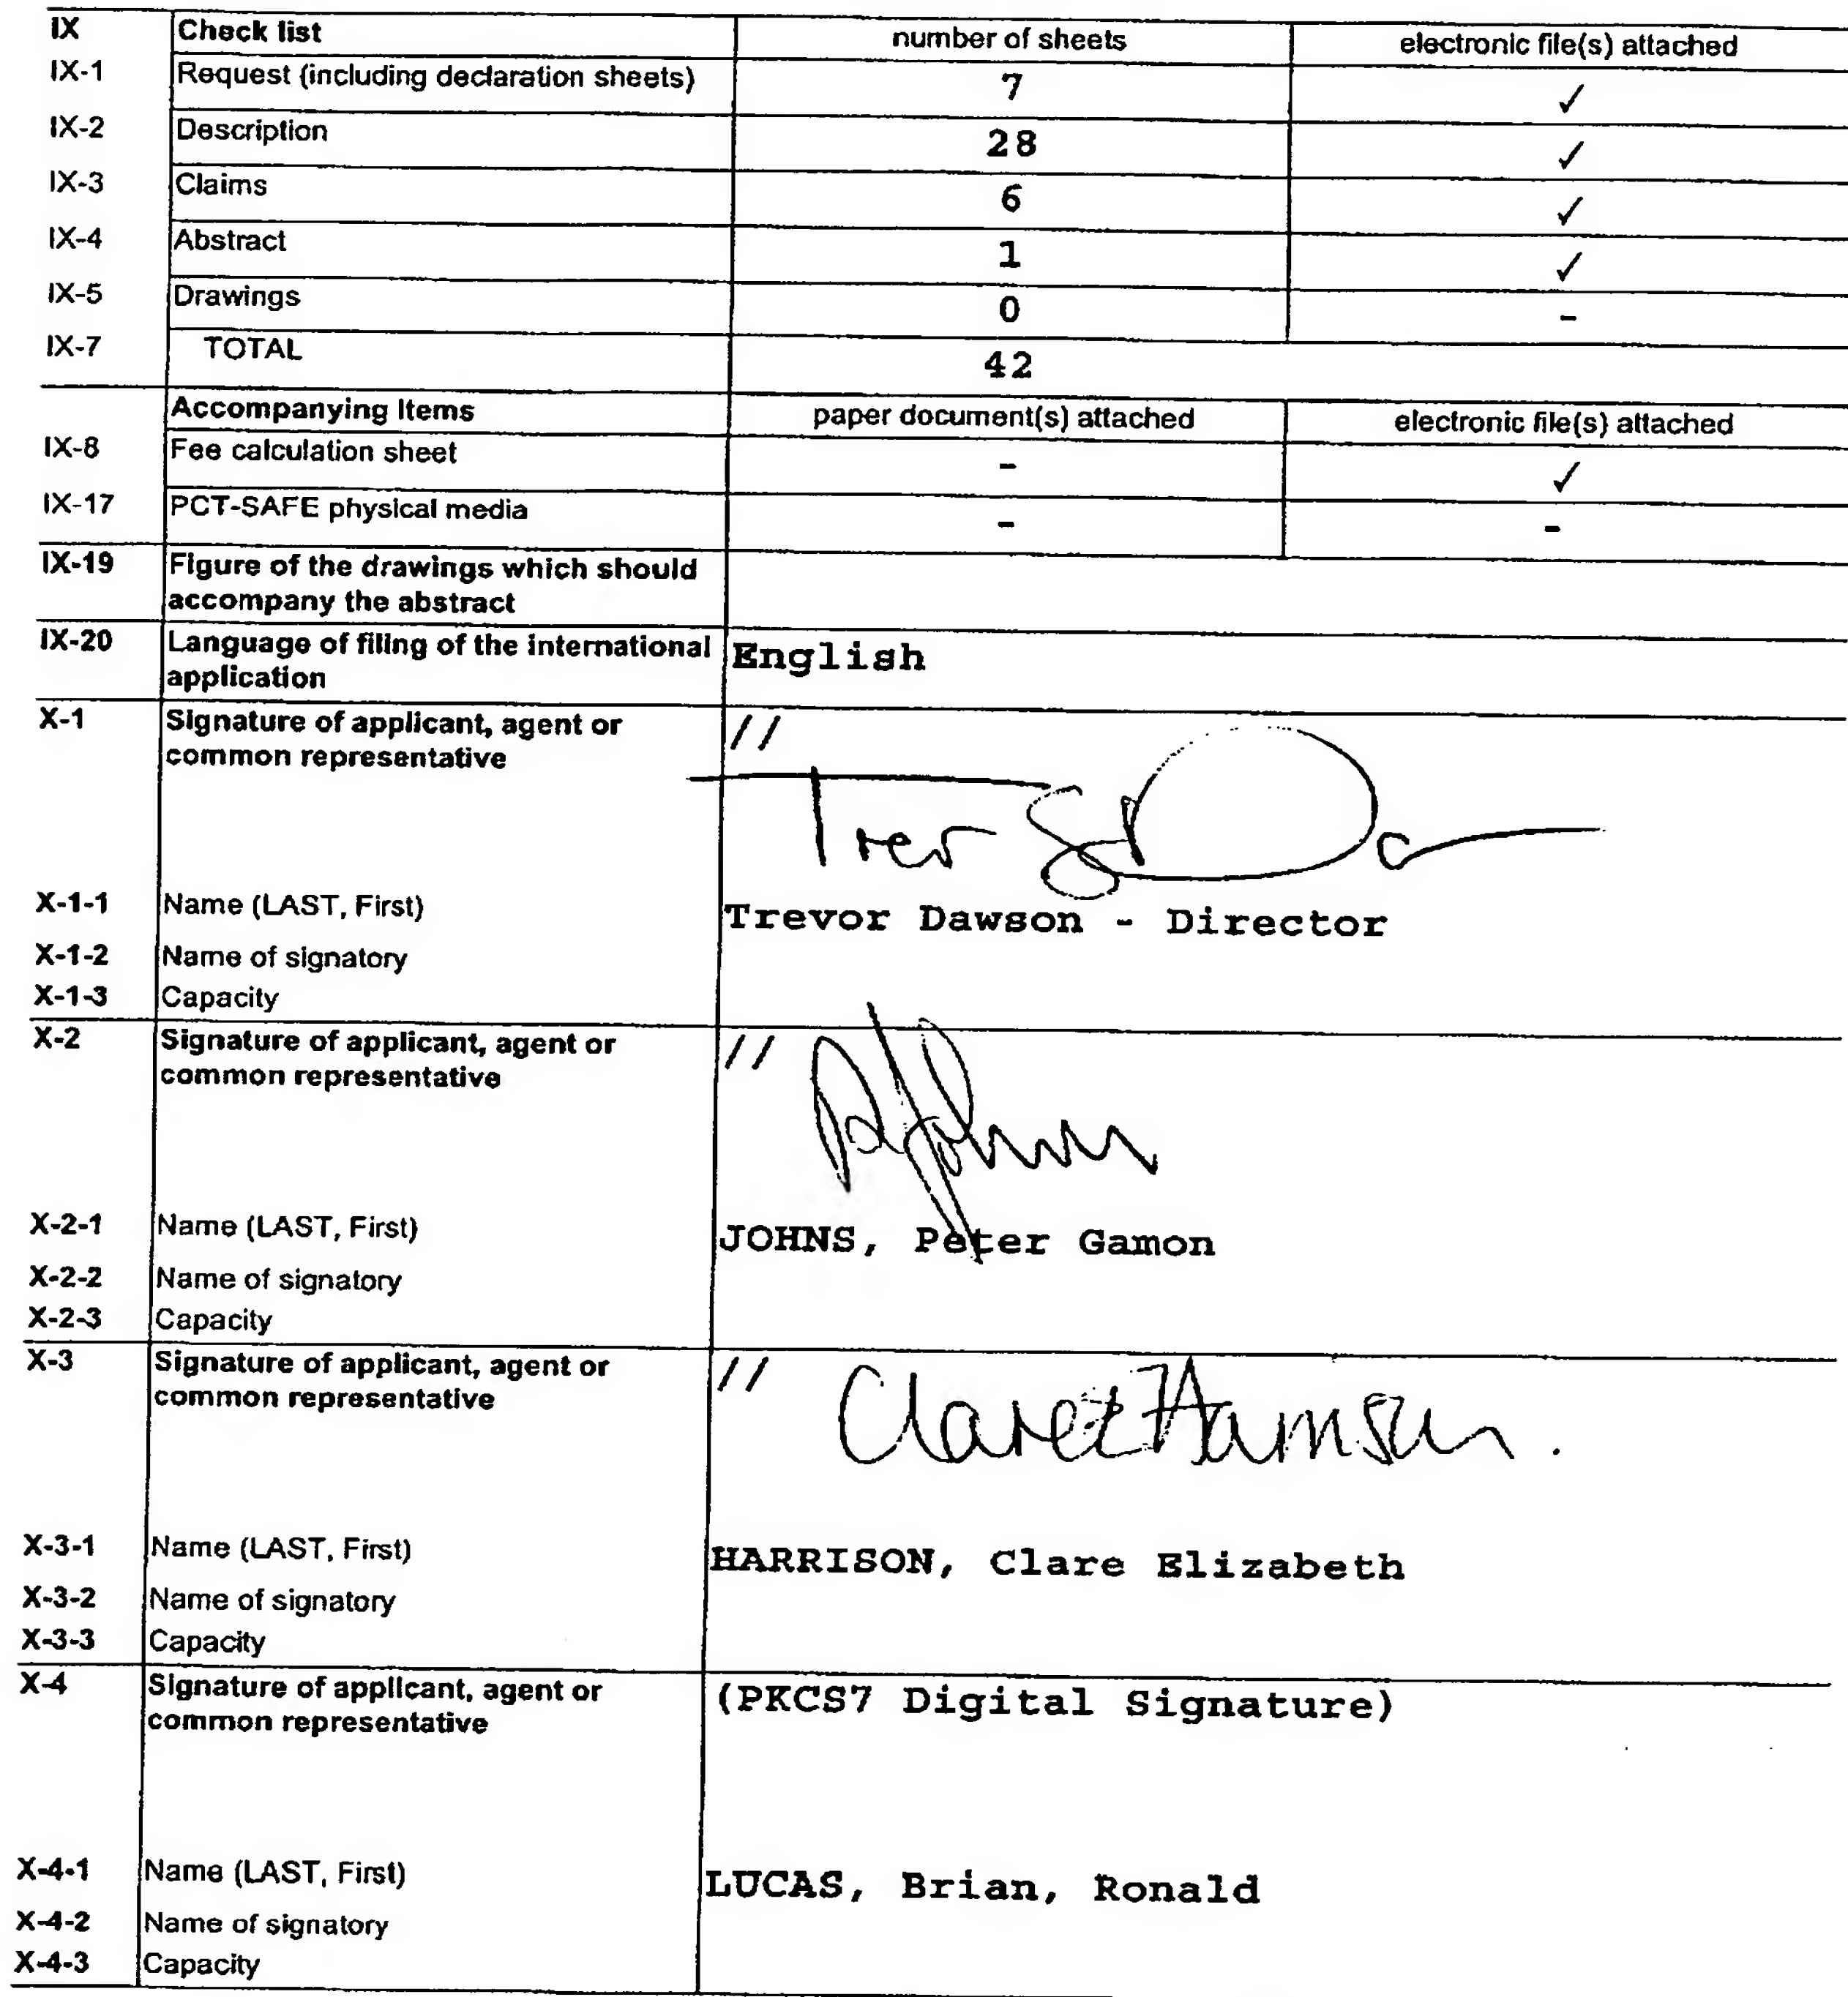 IX Check list number of sheets electronic file(s) attached
IX-1 Request (including declaration sheets) 7 ✓
IX-2 Description 28 ✓
IX-3 Claims 6 ✓
IX-4 Abstract 1 ✓
IX-5 Drawings 0 -
IX-7 TOTAL 42
Accompanying Items paper document(s) attached electronic file(s) attached
IX-8 Fee calculation sheet - ✓
IX-17 PCT-SAFE physical media - -
IX-19 Figure of the drawings which should
accompany the abstract
IX-20 Language of filing of the international English
application
X-1 Signature of applicant, agent or //
common representative
X-1-1 Name (LAST, First) Trevor Dawson - Director
X-1-2 Name of signatory
X-1-3 Capacity
X-2 Signature of applicant, agent or //
common representative
X-2-1 Name (LAST, First) JOHNS, Peter Gamon
X-2-2 Name of signatory
X-2-3 Capacity
X-3 Signature of applicant, agent or //
common representative
Clare E Harrison.
X-3-1 Name (LAST, First) HARRISON, Clare Elizabeth
X-3-2 Name of signatory
X-3-3 Capacity
X-4 Signature of applicant, agent or (PKCS7 Digital Signature)
common representative
X-4-1 Name (LAST, First) LUCAS, Brian, Ronald
X-4-2 Name of signatory
X-4-3 Capacity